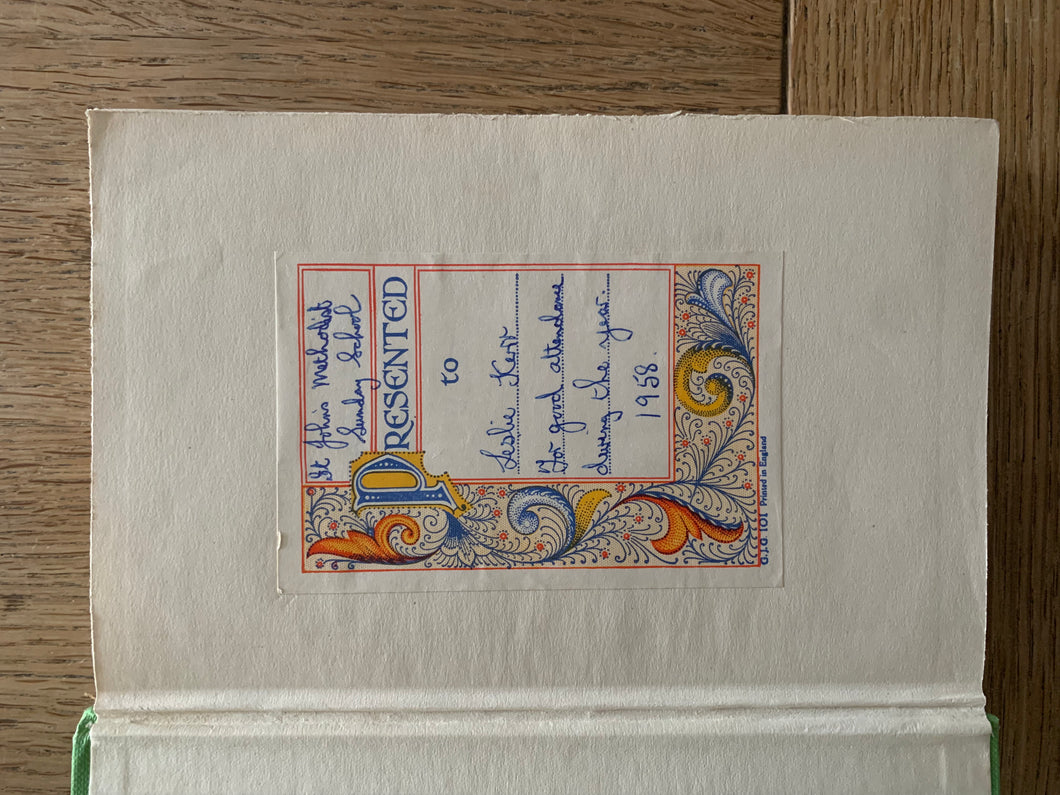 St John's Methodist
Sunday School
PRESENTED
to
Leslie Kerr
For good attendance
during the year.
1958.
G.J.G 101 Printed in England